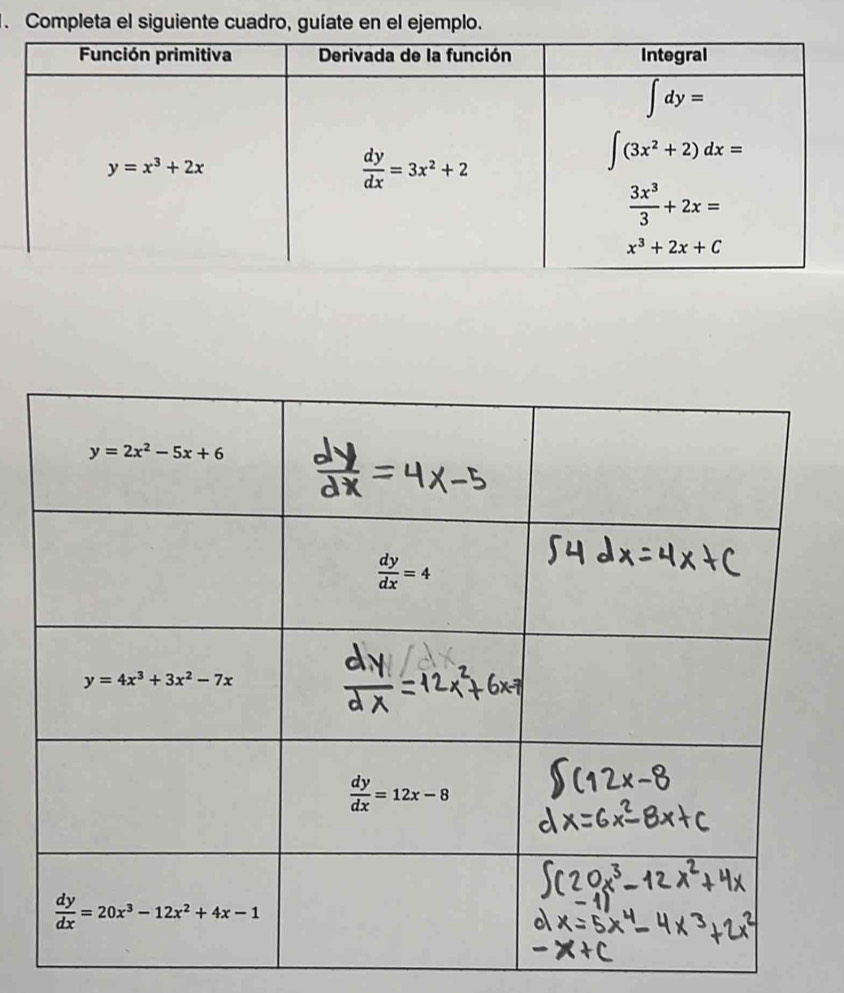 . Completa el siguiente cuadro, guíate en el ejemplo.
Función primitiva Derivada de la función Integral
∫ dy =
y = x³ + 2x dy/dx = 3x² + 2 ∫ (3x² + 2) dx =
3x³/3 + 2x =
x³ + 2x + C
y = 2x² − 5x + 6 dy/dx = 4x − 5
dy/dx = 4 ∫4 dx = 4x + C
y = 4x³ + 3x² − 7x dy/dx = 12x² + 6x-7
dy/dx = 12x − 8 ∫(12x − 8
dx = 6x² − 8x + c
dy/dx = 20x³ − 12x² + 4x − 1 ∫(20x³ − 12x² + 4x
− 1)
dx = 5x⁴ − 4x³ + 2x²
− x + C